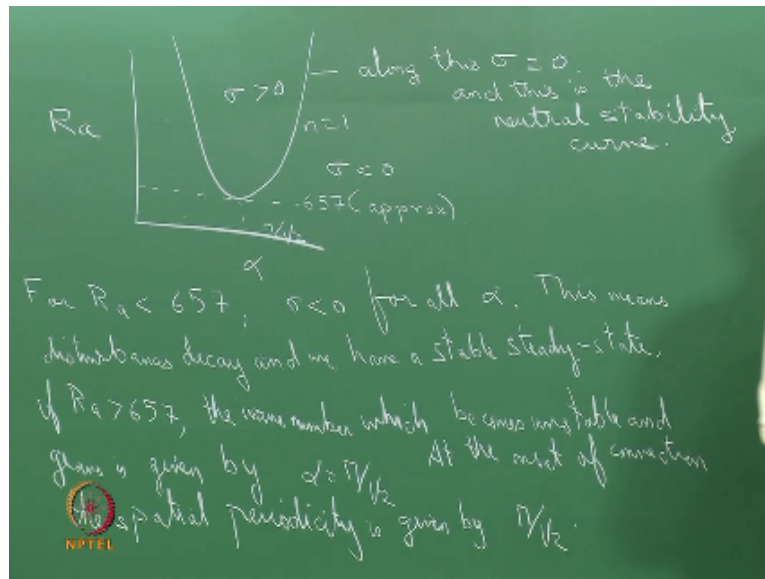 along this σ = 0
and this is the
neutral stability
curve.
σ > 0
Ra
n=1
σ < 0
657 (approx)
π/√2
α
For Ra < 657, σ < 0 for all α. This means
disturbances decay and we have a stable steady-state.
if Ra > 657, the wave number which becomes unstable and
grows is given by α = π/√2 At the onset of convection
the spatial periodicity is given by π/√2.
NPTEL